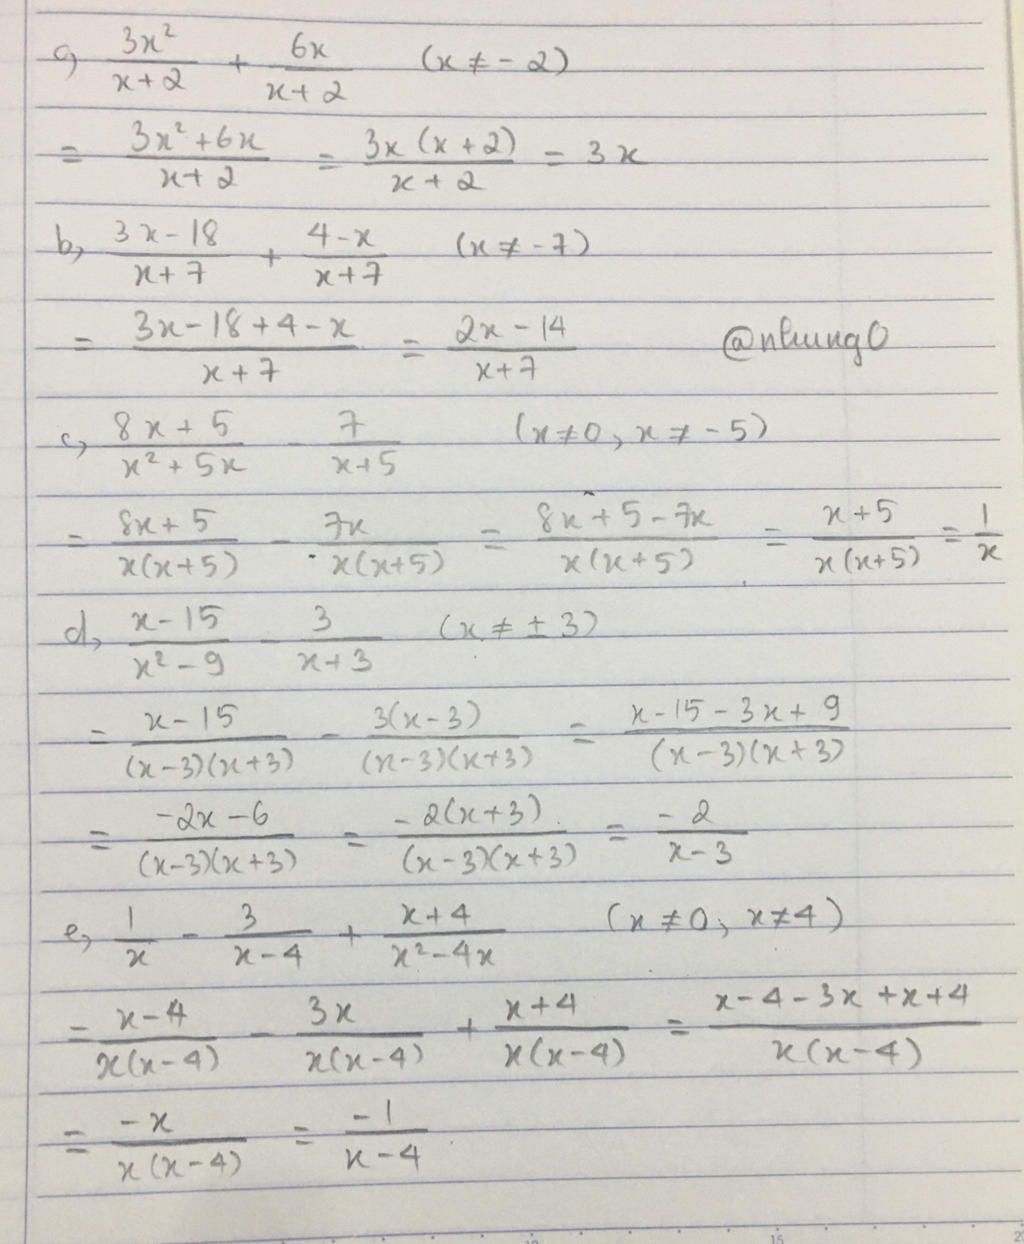 a, 3x²/(x+2) + 6x/(x+2) (x ≠ -2)
= (3x²+6x)/(x+2) = 3x(x+2)/(x+2) = 3x
b, (3x-18)/(x+7) + (4-x)/(x+7) (x ≠ -7)
= (3x-18+4-x)/(x+7) = (2x-14)/(x+7) @nhung0
c, (8x+5)/(x²+5x) - 7/(x+5) (x≠0, x≠-5)
= (8x+5)/(x(x+5)) - 7x/(x(x+5)) = (8x+5-7x)/(x(x+5)) = (x+5)/(x(x+5)) = 1/x
d, (x-15)/(x²-9) - 3/(x+3) (x ≠ ±3)
= (x-15)/((x-3)(x+3)) - 3(x-3)/((x-3)(x+3)) = (x-15-3x+9)/((x-3)(x+3))
= (-2x-6)/((x-3)(x+3)) = -2(x+3)/((x-3)(x+3)) = -2/(x-3)
e, 1/x - 3/(x-4) + (x+4)/(x²-4x) (x≠0, x≠4)
= (x-4)/(x(x-4)) - 3x/(x(x-4)) + (x+4)/(x(x-4)) = (x-4-3x+x+4)/(x(x-4))
= -x/(x(x-4)) = -1/(x-4)
15